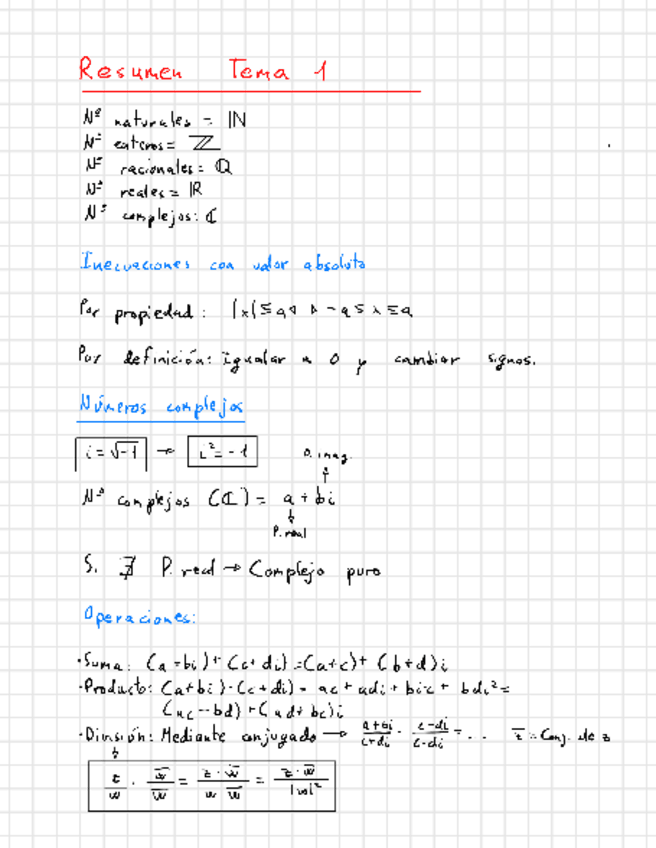 Resumen Tema 1
Nº naturales = ℕ
Nº enteros = ℤ
Nº racionales = ℚ
Nº reales = ℝ
Nº complejos: ℂ
Inecuaciones con valor absoluto
Por propiedad: |x| ≤ a ◁ ▷ -a ≤ x ≤ a
Por definición: igualar a 0 y cambiar signos.
Números complejos
i = √-1 → i² = -1
P. imag.
↑
Nº complejos (ℂ) = a + bi
↓
P. real
Si ∄ P. real → Complejo puro
Operaciones:
· Suma: (a + bi) + (c + di) = (a + c) + (b + d)i
· Producto: (a + bi) · (c + di) = ac + adi + bic + bdi² =
(ac - bd) + (ad + bc)i
· División: Mediante conjugado → a+bi/c+di · c-di/c-di = ... z̅ = Conj. de z
↓
z/w · w̅/w̅ = z · w̅/w · w̅ = z · w̅/|w|²